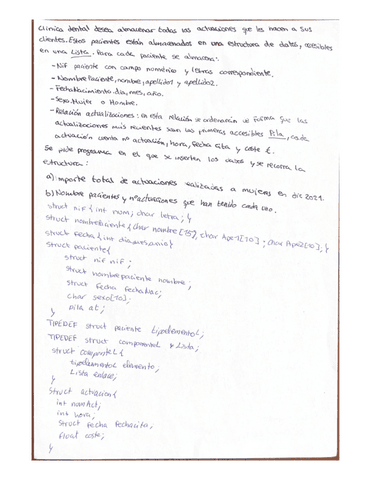 Clínica dental desea almacenar todas las actuaciones que les hacen a sus
clientes. Estos pacientes están almacenados en una estructura de datos, accesibles
en una Lista. Para cada paciente se almacena:
- Nif paciente con campo numérico y letras correspondiente.
- Nombre Paciente, nombre, apellido1 y apellido2.
- Fecha Nacimiento día, mes, año.
- Sexo: Mujer o Hombre.
- Relación actualizaciones: en esta relación se ordenarán de forma que las
actualizaciones más recientes sean las primeras accesibles Pila, cada
actuación consta nº actuación, hora, fecha cita y coste €.
Se pide programa en el que se inserten los casos y se recorra la
estructura:
a) importe total de actuaciones realizadas a mujeres en dic 2021.
b) Nombre pacientes y nº actuaciones que han tenido cada uno.
struct nif { int num; char letra; }
struct nombrePaciente { char nombre [15], char Ape1[20]; char Ape2[20]; }
struct fecha { int dia, mes, anio }
struct paciente {
struct nif nif;
struct nombrepaciente nombre;
struct fecha fechaNac;
char sexo[10];
pila at;
}
TYPEDEF struct paciente tipoElementoL;
TYPEDEF struct componenteL * Lista;
struct componenteL {
tipoElementoL elemento;
Lista enlace;
}
struct actuacion {
int numAct;
int hora;
struct fecha fechacita;
float coste;
}